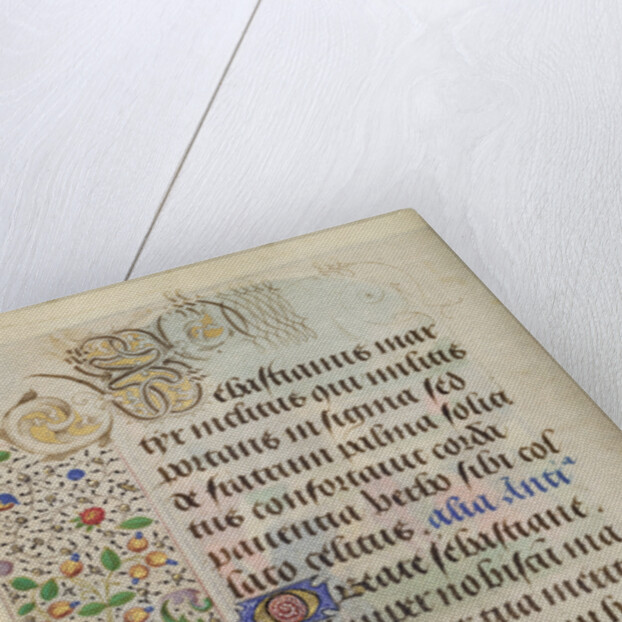 Sebastianus mar
tyr inclitus qui militis
portans insigma sed
de fratrum palma solia
tus confortauit corda
patientia verbo sibi col
lato celitus. alia Anti
O beate sebastiane.
semper nobiscum ma